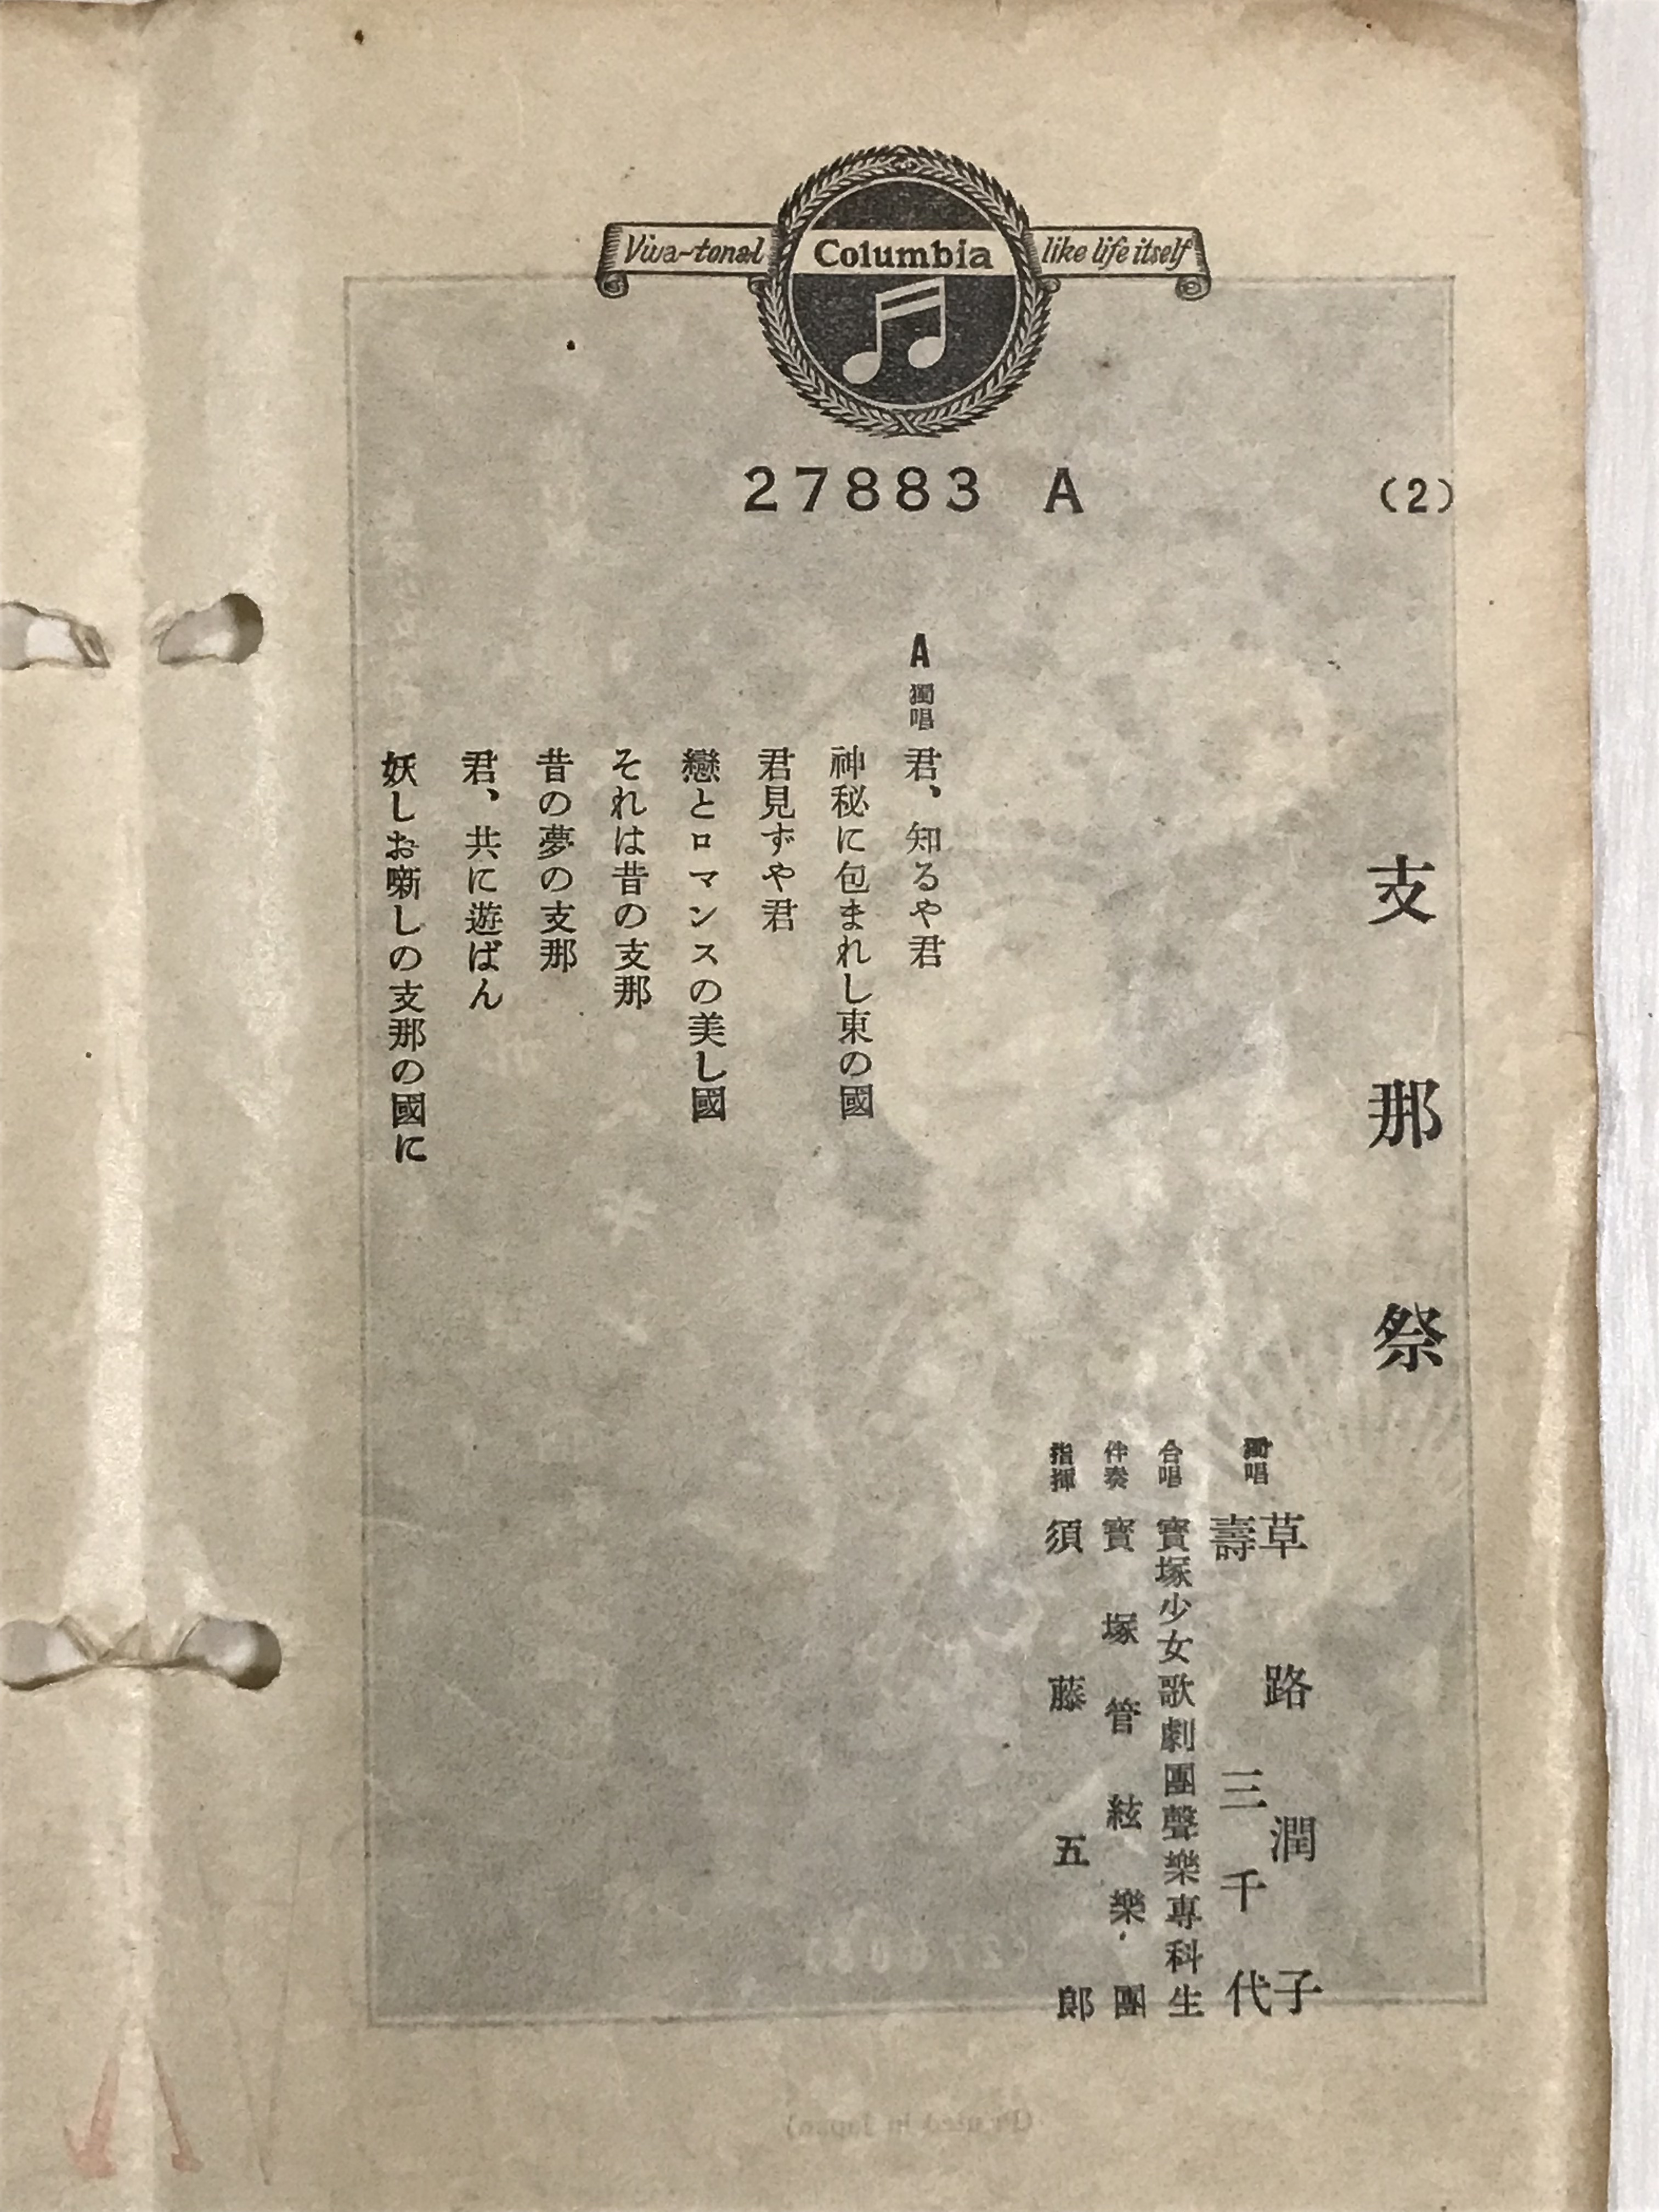 Viva-tonal Columbia like life itself
27883 A
(2)
支那祭
獨唱 草路潤子
壽三千代
合唱 寶塚少女歌劇團聲樂專科生
伴奏 寶塚管絃樂團
指揮 須藤五郎
A 獨唱 君、知るや君
神秘に包まれし東の國
君見ずや君
戀とロマンスの美し國
それは昔の支那
昔の夢の支那
君、共に遊ばん
妖しお噺しの支那の國に